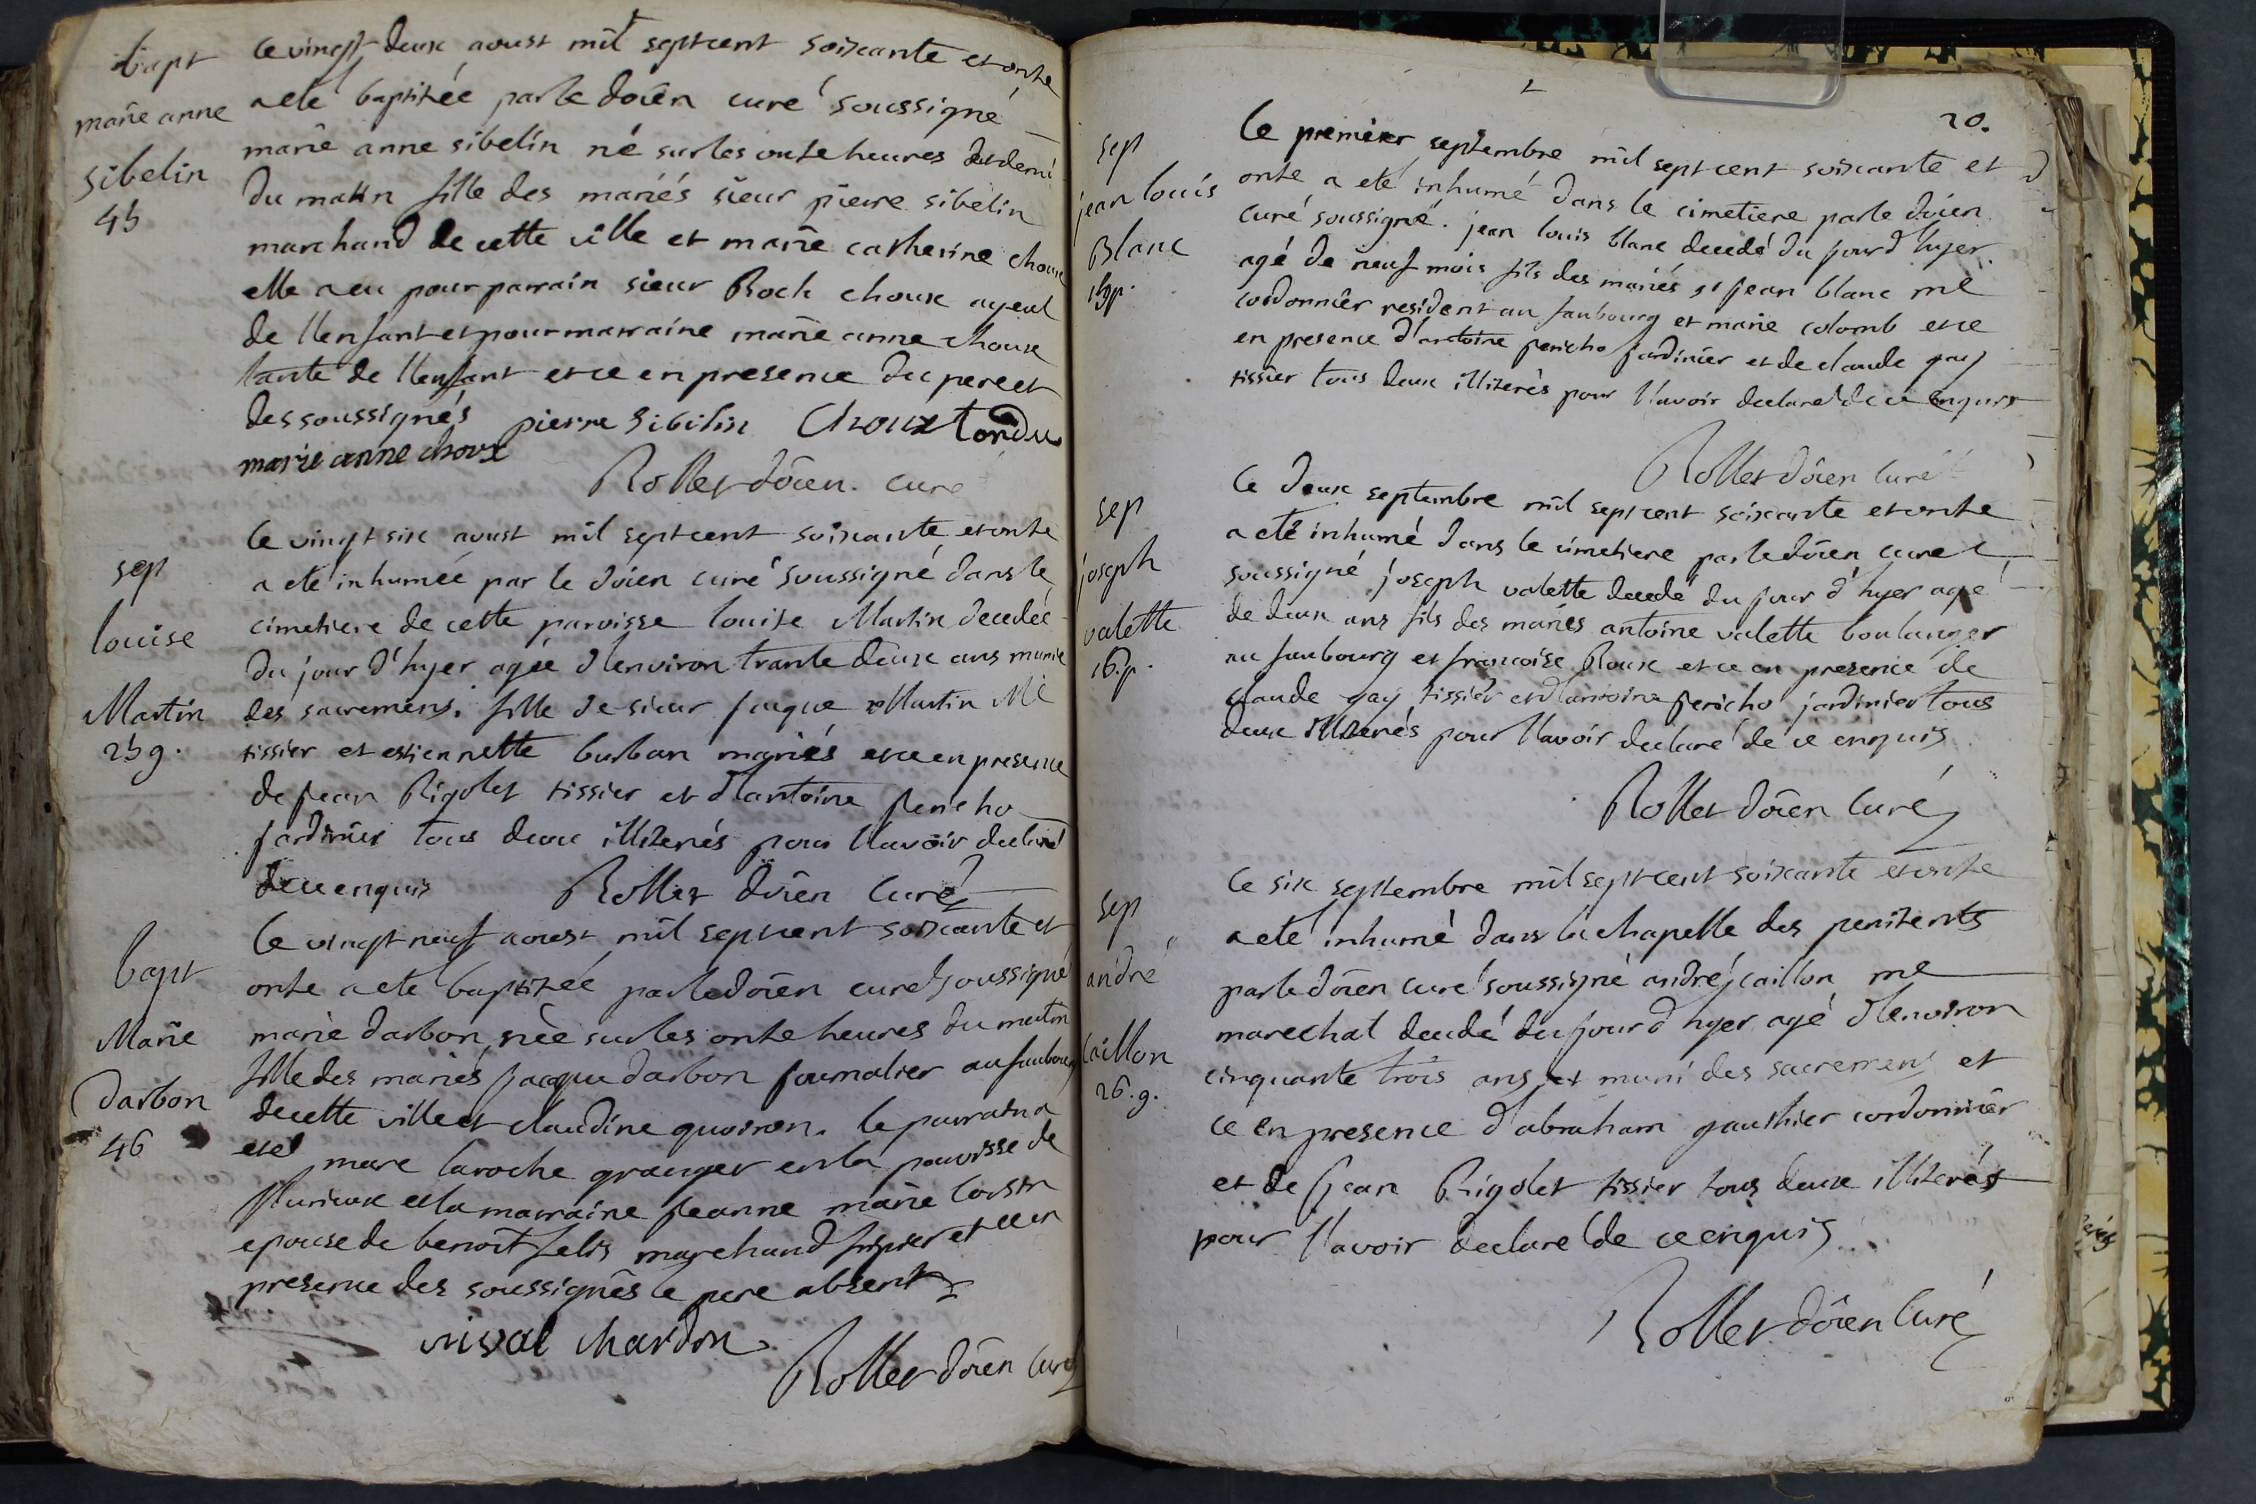 bapt
marie anne
sibelin
45
ce vingt deux aoust mil sept cent soixante et onse
a eté baptisée par le doïen curé soussigné
marie anne sibelin né sur les onse heures et demi
du matin fille des mariés sieur pierre sibelin
marchand de cette ville et marie catherine choux
elle a eu pour parrain sieur Roch choux ayeul
de llenfant et pour marraine marie anne choux
tante de llenfant et ce en presence du pere et
des soussignés pierre Sibilin Choux tondu
marie anne choux
Rollet doïen curé
sep
louise
Martin
25 g.
ce vingt six aoust mil sept cent soixante et onse
a eté inhumée par le doïen curé soussigné dans le
cimetiere de cette paroisse louise Martin decedée
du jour d'hyer agée d'environ trante deux ans munie
des sacremens. fille de sieur jaque Martin Me
tissier et estiennette burban mariés et ce en presence
de jean Rigolet tissier et d'antoine jericho
jardinier tous deux illiterés pour llavoir declaré
de ce enquis Rollet doïen Curé
bapt
Marie
darbon
46
ce vingt neuf aoust mil sept cent soixante et
onse a eté baptisée par le doïen curé soussigné
marie darbon née sur les onse heures du matin
fille des mariés jacque darbon journalier au faubourg
de cette ville et claudine quoiron. le parrain a
eté marc laroche granger en la paroisse de
flurieux et la marraine jeanne marie
epouse de benoit felis marchand fripier et ce en
presence des soussignés le pere absent
nisval chardon
Rollet doïen curé
20.
sep
jean louis
Blanc
15 p.
Ce premier septembre mil sept cent soixante et
onse a eté inhumé dans le cimetiere par le doïen
curé soussigné. jean louis blanc decedé du jour d'hyer
agé de neuf mois fils des mariés sr jean blanc me
cordonnier resident au faubourg et marie colomb et ce
en presence d'antoine jericho jardinier et de claude gay
tissier tous deux illiterés pour llavoir declaré de ce enquis
Rollet doïen Curé
sep
joseph
valette
16. p.
Ce deux septembre mil sept cent soixante et onse
a eté inhumé dans le cimetiere par le doïen curé
soussigné joseph valette decedé du jour d'hyer agé
de deux ans fils des mariés antoine valette boulanger
au faubourg et francoise Roux et ce en presence de
claude gay tissier et d'antoine jericho jardinier tous
deux illiterés pour llavoir declaré de ce enquis
Rollet doïen Curé
sep
andré
Caillon
26. g.
Ce six septembre mil sept cent soixante et onse
a eté inhumé dans la chapelle des penitents
par le doïen curé soussigné andré caillon me
marechal decedé du jour d'hyer agé d'environ
cinquante trois ans et muni des sacremens et
ce en presence d'abraham gauthier cordonnier
et de jean Rigolet tissier tous deux illiterés
pour llavoir declaré de ce enquis
Rollet doïen Curé